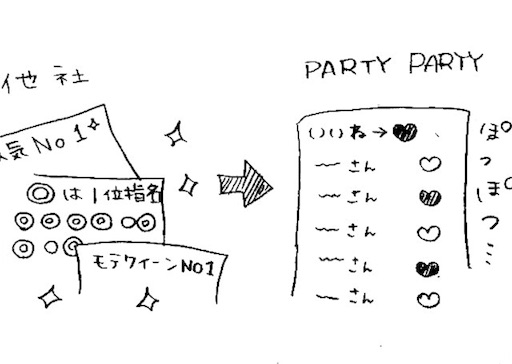 他社
人気No1
◎は1位指名
◎◎◎◎○◎
◎○◎
モテクイーンNO1
PARTY PARTY
いいね→♥
〜さん ♡
〜さん ♥
〜さん ♡
〜さん ♥
〜さん ♡
ぽつぽつ…